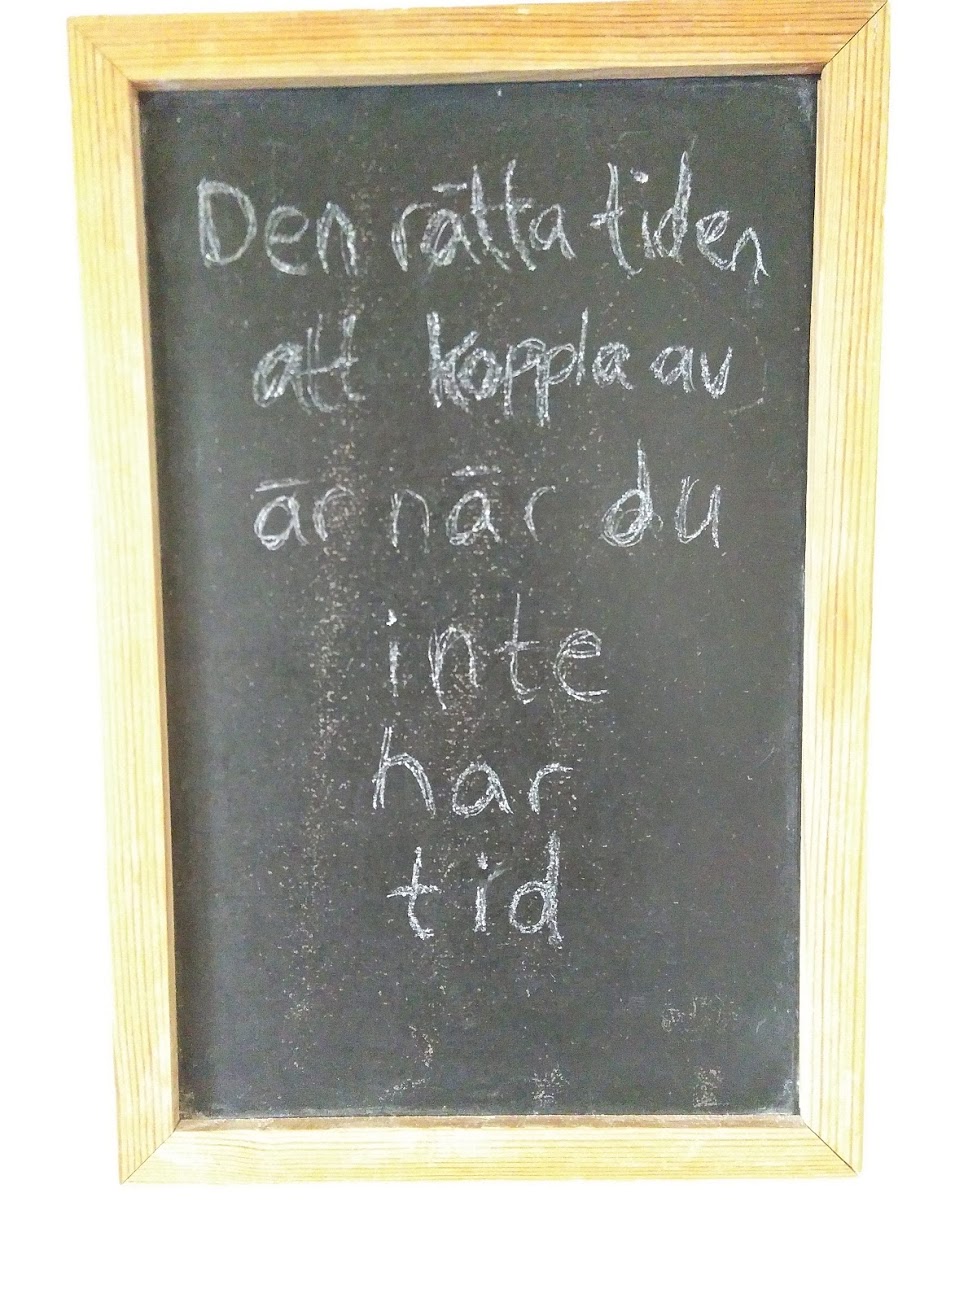 Den rätta tiden
att koppla av
är när du
inte
har
tid